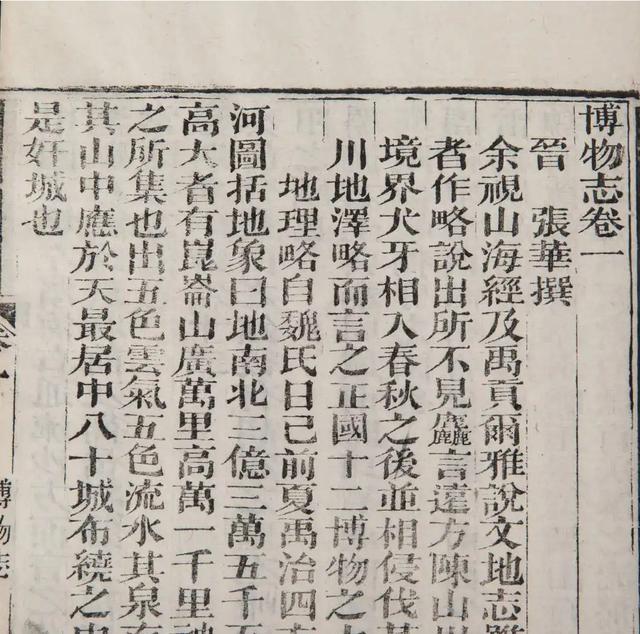 博物志卷一
晉 張華撰
余視山海經及禹貢爾雅說文地志雖
者作略說出所不見麤言遠方陳山出
境界犬牙相入春秋之後並相侵伐其
川地澤略而言之正國十二博物之士
地理略自魏氏日已前夏禹治四方
河圖括地象曰地南北三億三萬五千五
高大者有崑崙山廣萬里高萬一千里神
之所集也出五色雲氣五色流水其泉
其山中應於天最居中八十城布繞之中
是奸城也
博物志